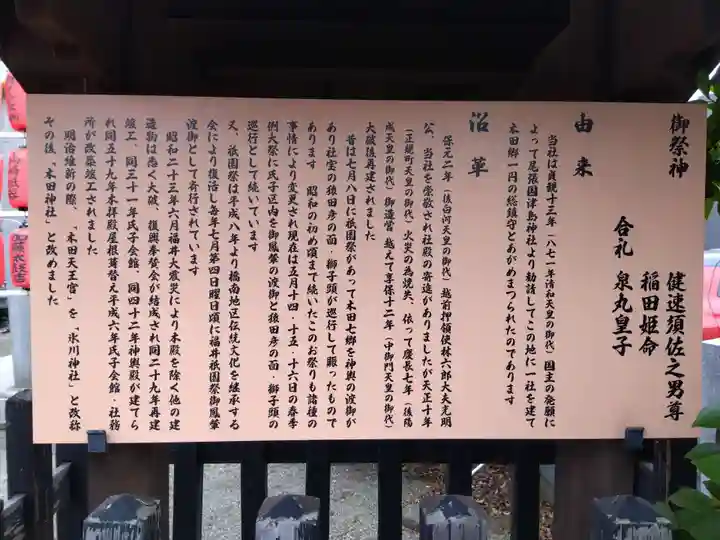 御祭神
健速須佐之男尊
稲田姫命
合礼 泉丸皇子
由来
当社は貞観十三年(八七一年清和天皇の御代)国主の発願に
よって尾張国津島神社より勧請してこの地に一社を建て
木田郷一円の総鎮守とあがめまつられたのであります
沿革
保元二年(後白河天皇の御代)越前押領使林六郎大夫光明
公、当社を崇敬され社殿の寄進がありましたが天正十年
(正親町天皇の御代)火災の為焼失、依って慶長七年(後陽
成天皇の御代)御造営 越えて享保十二年(中御門天皇の御代)
大破後再建されました
昔は七月八日に祇園祭があって木田七郷を神輿の渡御が
あり社宝の猿田彦の面・獅子頭が巡行して賑ったもので
あります 昭和の初め頃まで続いたこのお祭りも諸種の
事情により変更され現在は五月十四・十五・十六日の春季
例大祭に氏子区内を御鳳輦の渡御と猿田彦の面・獅子頭の
巡行として続いています
又、祇園祭は平成八年より橋南地区伝統文化を継承する
会により復活し毎年七月第四日曜日頃に福井祇園祭御鳳輦
渡御として斎行されています
昭和二十三年六月福井大震災により本殿を除く他の建
造物は悉く大破、復興奉賛会が結成され同二十九年再建
竣工、同三十一年氏子会館、同四十二年神輿殿が建てら
れ同五十九年本拝殿屋根葺替え平成六年氏子会館・社務
所が改築竣工されました
明治維新の際、「木田天王宮」を「氷川神社」と改称
その後「木田神社」と改めました